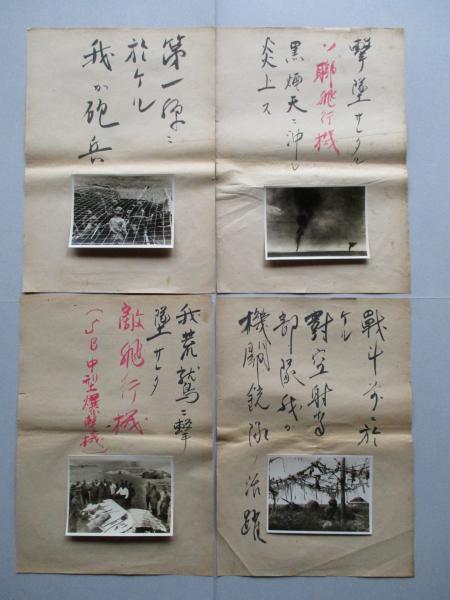 撃墜サレタル
ソ聯飛行機
黒煙天ニ沖シ
炎上ス
第一線ニ
於ケル
我が砲兵
戰斗前ニ於
ケル
對空射撃
部隊我が
機関銃隊ノ活躍
我荒鷲ニ撃
墜サレタ
敵飛行機
(SB中型爆撃機)